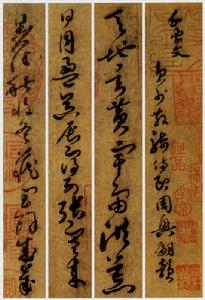 千字文
員外散騎侍郎周興嗣韻
天地玄黃宇宙洪荒
日月盈昃辰宿列張寒來
暑往秋收冬藏閏餘成歲